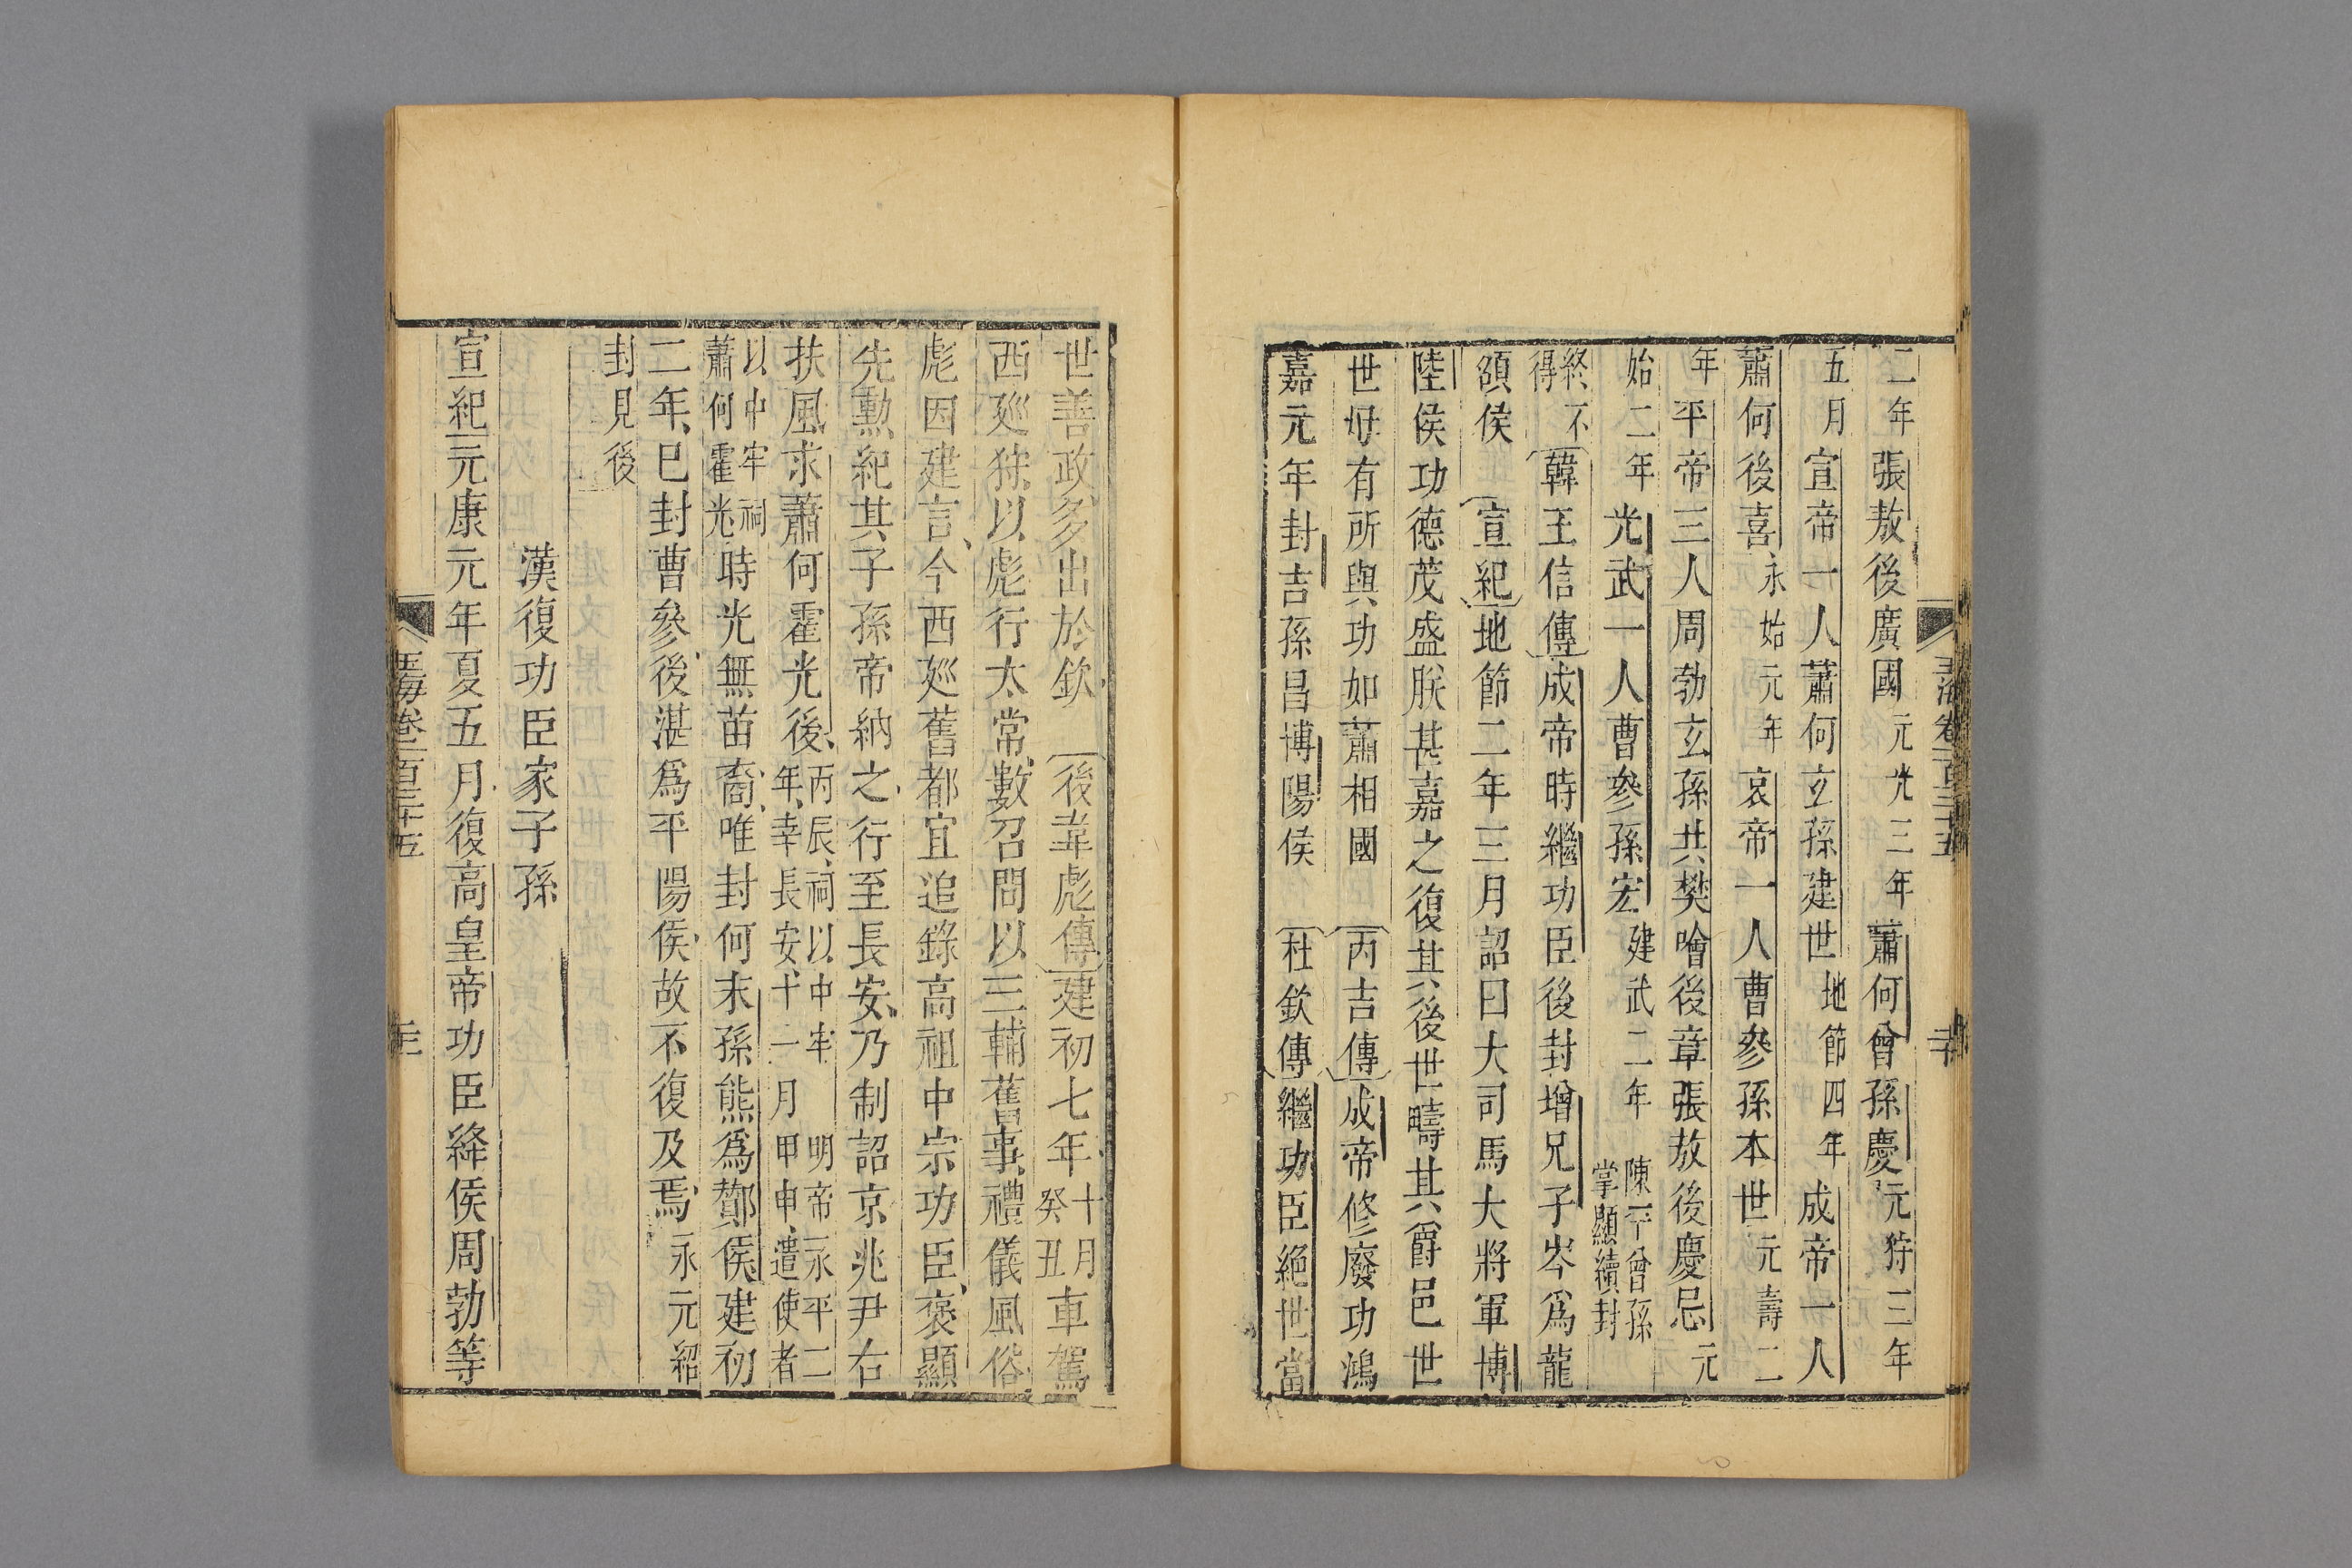 玉海卷一百三十五
二十
二年張敖後廣國元光三年蕭何曾孫慶元狩三年
五月宣帝一人蕭何玄孫建世地節四年成帝一人
蕭何後喜永始元年哀帝一人曹參孫本世元壽二
年平帝三人周勃玄孫共樊噲後章張敖後慶忌元
始二年光武一人曹參孫宏建武二年陳平曾孫
掌顯續封
終不
得韓王信傳成帝時繼功臣後封增兄子岑爲龍
頟侯宣紀地節二年三月詔曰大司馬大將軍博
陸侯功德茂盛朕甚嘉之復其後世疇其爵邑世
世毋有所與功如蕭相國丙吉傳成帝修廢功鴻
嘉元年封吉孫昌博陽侯杜欽傳繼功臣絕世當
世善政多出於欽後韋彪傳建初七年十月
癸丑車駕
西廵狩以彪行太常數召問以三輔舊事禮儀風俗
彪因建言今西廵舊都宜追錄高祖中宗功臣襃顯
先勳紀其子孫帝納之行至長安乃制詔京兆尹右
扶風求蕭何霍光後丙辰祠以中牢明帝永平二
年幸長安十一月甲申遣使者
以中牢祠
蕭何霍光時光無苗裔唯封何末孫熊爲酇侯建初
二年已封曹參後湛爲平陽侯故不復及焉永元紹
封見後
漢復功臣家子孫
宣紀元康元年夏五月復高皇帝功臣絳侯周勃等
玉海卷一百三十五